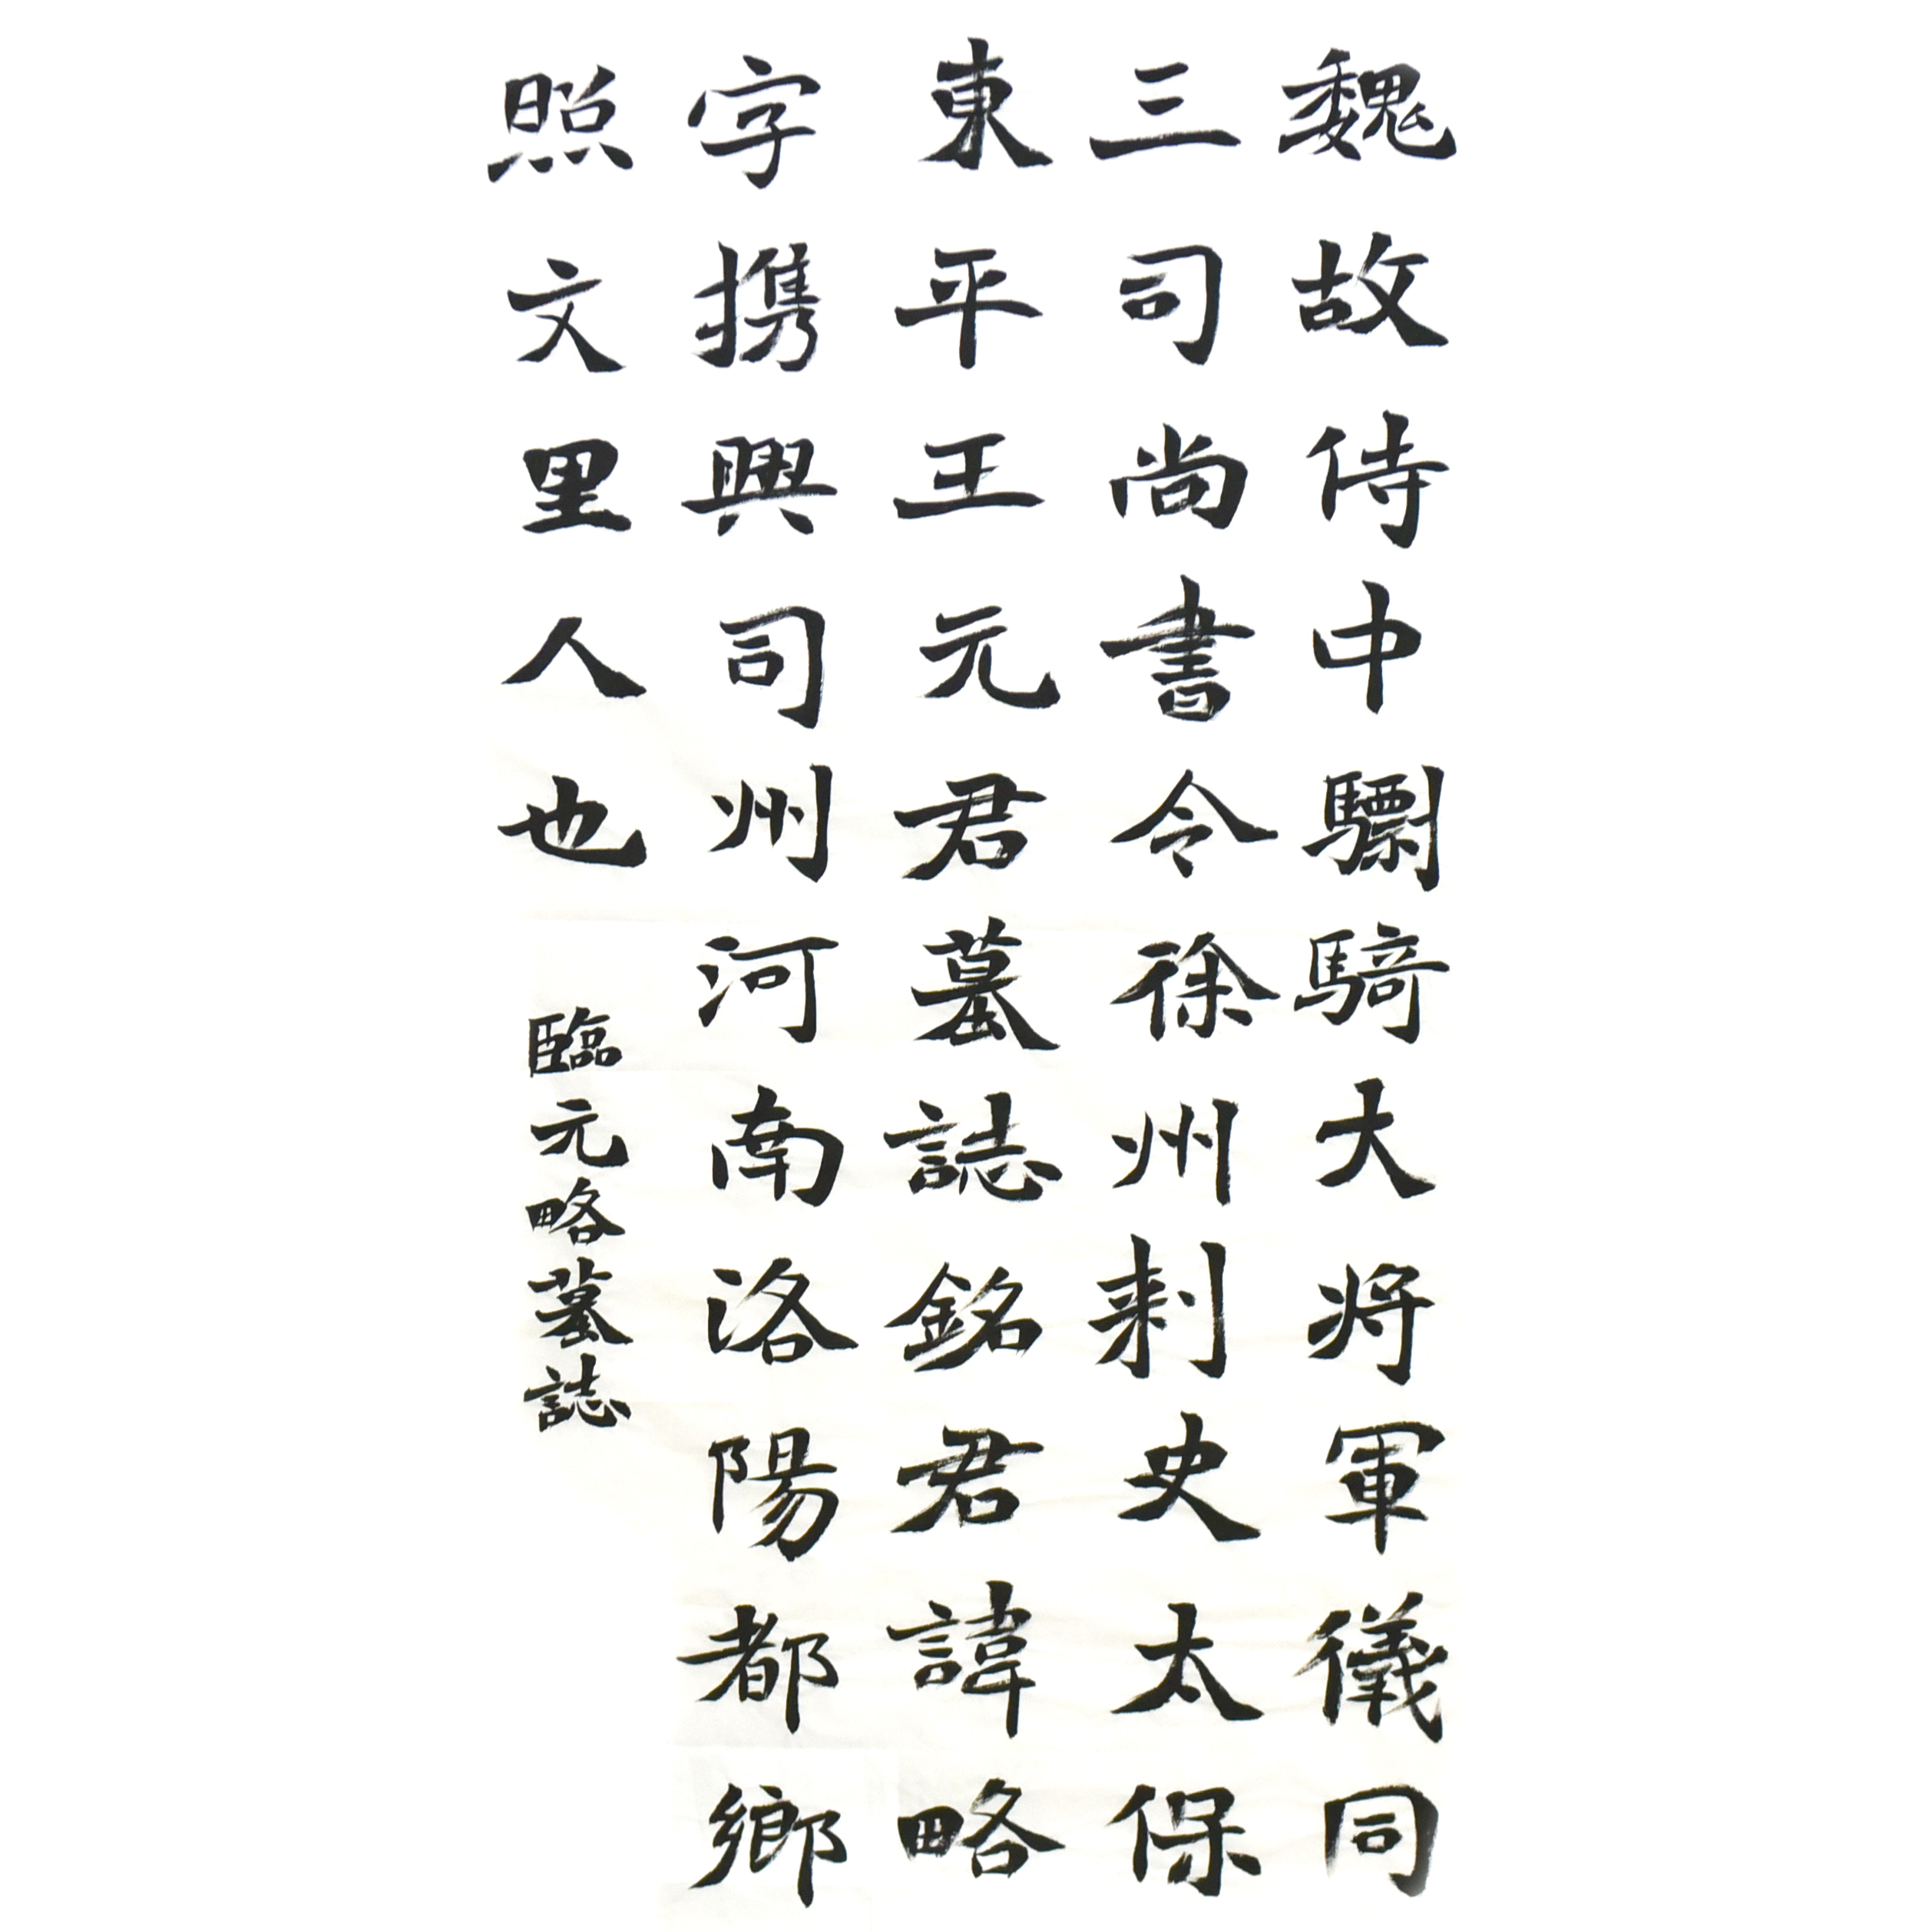 魏故侍中驃騎大将軍儀同
三司尚書令徐州刺史太保
東平王元君墓誌銘君諱略
字携興司州河南洛陽都鄉
照文里人也
臨元略墓誌